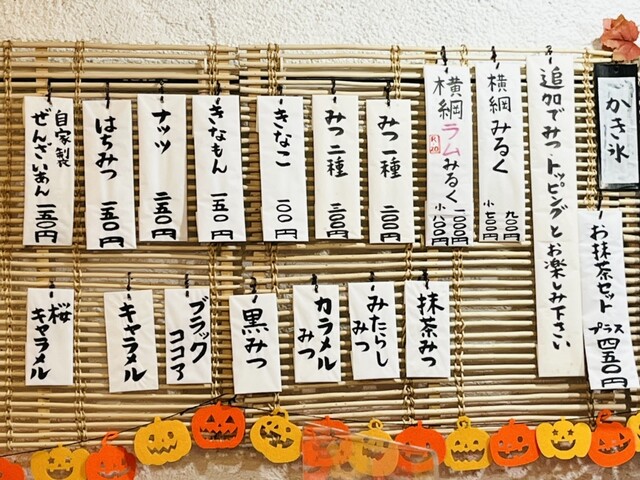 かき氷
お抹茶セット
プラス四五〇円
追加でみつ・トッピングとお楽しみ下さい
横綱みるく
九〇〇円
小 七〇〇円
横綱ラムみるく
一〇〇〇円
小 八〇〇円
みつ一種 二〇〇円
みつ二種 三〇〇円
きなこ 一〇〇円
きなもん 一五〇円
ナッツ 二五〇円
はちみつ 一五〇円
自家製
ぜんざいあん 一五〇円
抹茶みつ
みたらし
みつ
カラメル
みつ
黒みつ
ブラック
ココア
キャラメル
桜
キャラメル